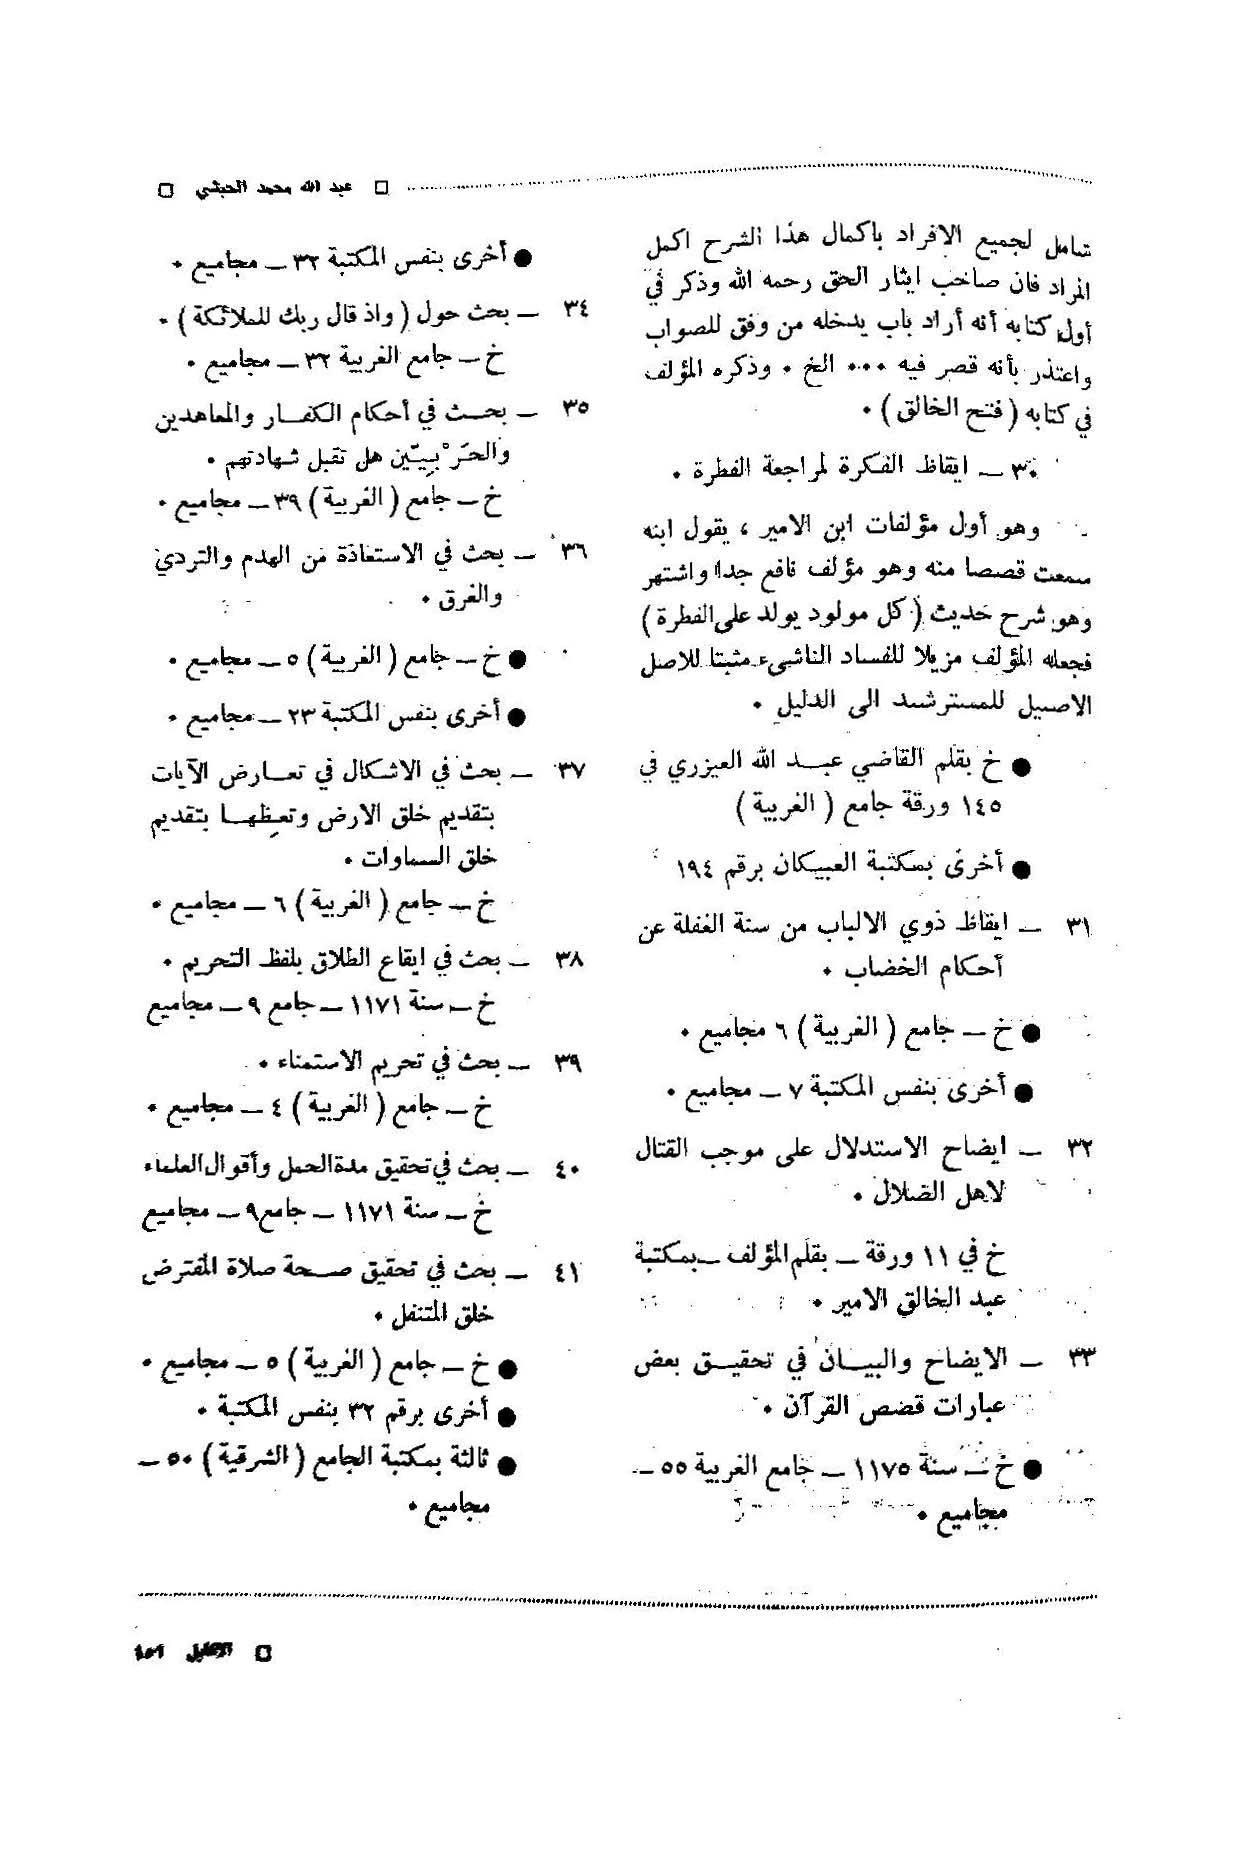 □ عبد الله محمد الحبشي □
شامل لجميع الافراد باكمال هذا الشرح اكمل
المراد فان صاحب ايثار الحق رحمه الله وذكر في
أول كتابه أنه أراد باب يدخله من وفق للصواب
واعتذر بأنه قصر فيه ٠٠٠ الخ ٠ وذكره المؤلف
في كتابه ( فتح الخالق ) ٠
٣٠ ــ ايقاظ الفكرة لمراجعة الفطرة ٠
وهو أول مؤلفات ابن الامير ، يقول ابنه
سمعت قصصا منه وهو مؤلف نافع جدا واشتهر
وهو شرح حديث ( كل مولود يولد على الفطرة )
فجعله المؤلف مزيلا للفساد الناشىء مثبتا للاصل
الاصيل للمسترشد الى الدليل ٠
● خ بقلم القاضي عبد الله العيزري في
١٤٥ ورقة جامع ( الغربية )
● أخرى بمكتبة العبيكان برقم ١٩٤
٣١ ــ ايقاظ ذوي الالباب من سنة الغفلة عن
أحكام الخضاب ٠
● خ ــ جامع ( الغربية ) ٦ مجاميع ٠
● أخرى بنفس المكتبة ٧ ــ مجاميع ٠
٣٢ ــ ايضاح الاستدلال على موجب القتال
لاهل الضلال ٠
خ في ١١ ورقة ــ بقلم المؤلف ــ بمكتبة
عبد الخالق الامير ٠
٣٣ ــ الايضاح والبيان في تحقيق بعض
عبارات قصص القرآن ٠
● خ ــ سنة ١١٧٥ ــ جامع الغربية ٥٥ ــ
مجاميع ٠
● أخرى بنفس المكتبة ٣٢ ــ مجاميع ٠
٣٤ ــ بحث حول ( واذ قال ربك للملائكة ) ٠
خ ــ جامع الغربية ٣٢ ــ مجاميع ٠
٣٥ ــ بحث في أحكام الكفار والمعاهدين
والحَرْبِيّين هل تقبل شهادتهم ٠
خ ــ جامع ( الغربية ) ٣٩ ــ مجاميع ٠
٣٦ ــ بحث في الاستعاذة من الهدم والتردي
والغرق ٠
● خ ــ جامع ( الغربية ) ٥ ــ مجاميع ٠
● أخرى بنفس المكتبة ٢٣ ــ مجاميع ٠
٣٧ ــ بحث في الاشكال في تعارض الآيات
بتقديم خلق الارض وتعظها بتقديم
خلق السماوات ٠
خ ــ جامع ( الغربية ) ٦ ــ مجاميع ٠
٣٨ ــ بحث في ايقاع الطلاق بلفظ التحريم ٠
خ ــ سنة ١١٧١ ــ جامع ٩ ــ مجاميع
٣٩ ــ بحث في تحريم الاستمناء ٠
خ ــ جامع ( الغربية ) ٤ ــ مجاميع ٠
٤٠ ــ بحث في تحقيق مدة الحمل وأقوال العلماء
خ ــ سنة ١١٧١ ــ جامع ٩ ــ مجاميع
٤١ ــ بحث في تحقيق صحة صلاة المفترض
خلق المتنفل ٠
● خ ــ جامع ( الغربية ) ٥ ــ مجاميع ٠
● أخرى برقم ٣٢ بنفس المكتبة ٠
● ثالثة بمكتبة الجامع ( الشرقية ) ٥٠ ــ
مجاميع ٠
□ الاكليل